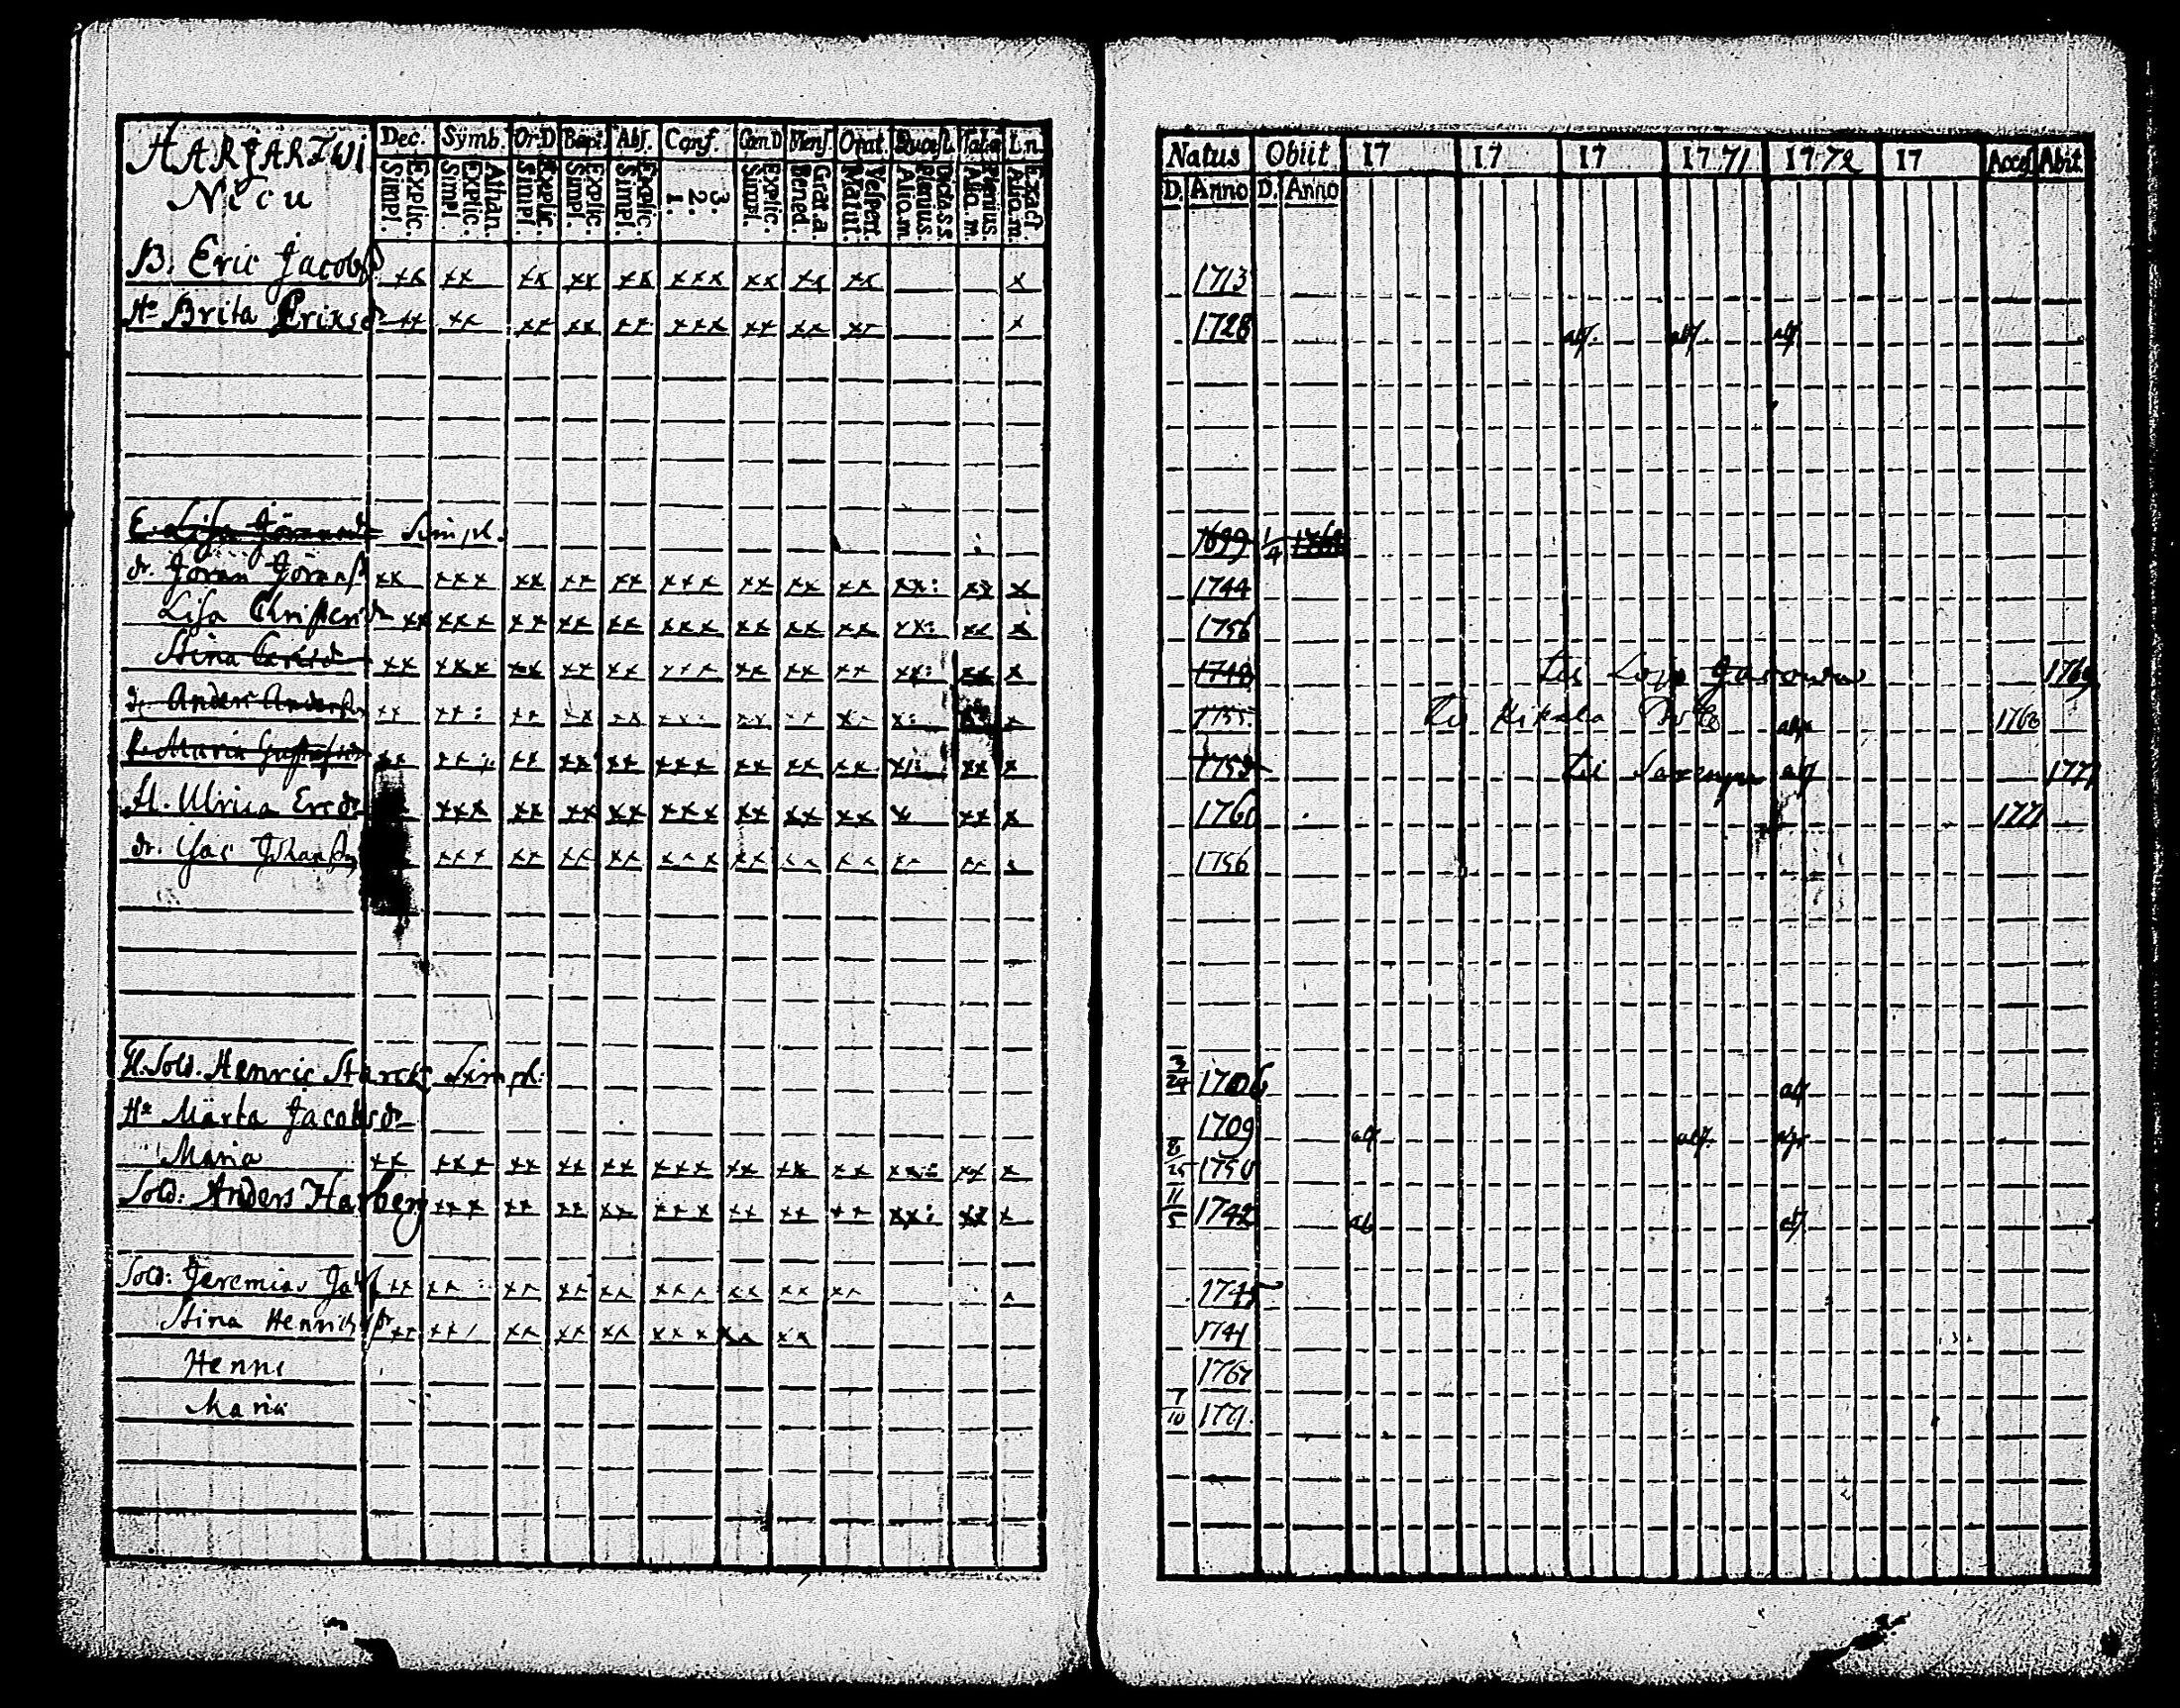 HARJARFWI Dec. Symb. Or.D Bapt. Abs. Conf. Cœn.D Mens. Orat. Quæst. Tab.œ Ln.
Nicu Explic. Simpl. Athan. Explic. Simpl. Explic. Simpl. Explic. Simpl. Explic. Simpl. 3. 2. 1. Explic. Simpl. Grat.a. Bened. Vesper. Matut. Dicta s.s. Plenius. Alio.m. Plenius. Alio.m. Exact. Alio.m.
B. Eric Jacobss xx xx xx xx xx xxx xx xx xx x
Hu Brita Eriksdr xx xx xx xx xx xxx xx xx xx x
E. Lisa Göransdr Simpl.
dr. Göran Göranss xx xxx xx xx xx xxx xx xx xx xx: xx x
Lisa Christersdr xx xxx xx xx xx xxx xx xx xx xx: xx x
Stina xx xxx xx xx xx xxx xx xx xx xx: xx x
dr. Anders Anderss xx xx: xx xx xx xxx xx xx xx x: x
P. Maria Gustafsdr xx xx: xx xx xx xxx xx xx xx xx: xx x
H. Ulrica Ersdr xxx xx xx xx xxx xx xx xx x xx x
dr. Johanss xxx xx xx xx xxx xx xx xx xx xx x
Gl. Sold. Henric Starck Simpl:
Hu Märta Jacobsdr
Maria xx xxx xx xx xx xxx xx xx xx xx: xx x
Sold: Anders Harberg xxx xx xx xx xxx xx xx xx xx: xx x
Sold: Jeremias xx xx: xx xx xx xxx xx xx xx x
Stina Henrichsdr xx xxx xx xx xx xxx xx xx
Henric
Maria
Natus Obiit 17 17 17 1771 1772 17 Access Abit
D. Anno D. Anno
1713
1728 abs. abs. abs
1699 1/4
1744
1756
1748 til Lojo 1769
1755 til Kikala abs 1768
1753 til abs 1771
1760 1771
1756
3/24 1706 abs
1709 abs abs. abs
8/25 1750
11/5 1742 ab abs
1745
1741
1767
7/10 1771.